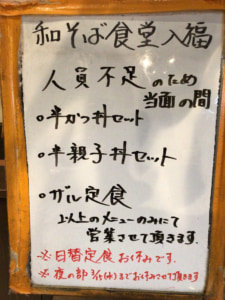 和そば食堂入福
人員不足のため
当面の間
◦半かつ丼セット
◦半親子丼セット
◦ザル定食
以上のメニューのみにて
営業させて頂きます
※日替定食お休みです.
※夜の部 までお休みさせて頂きます